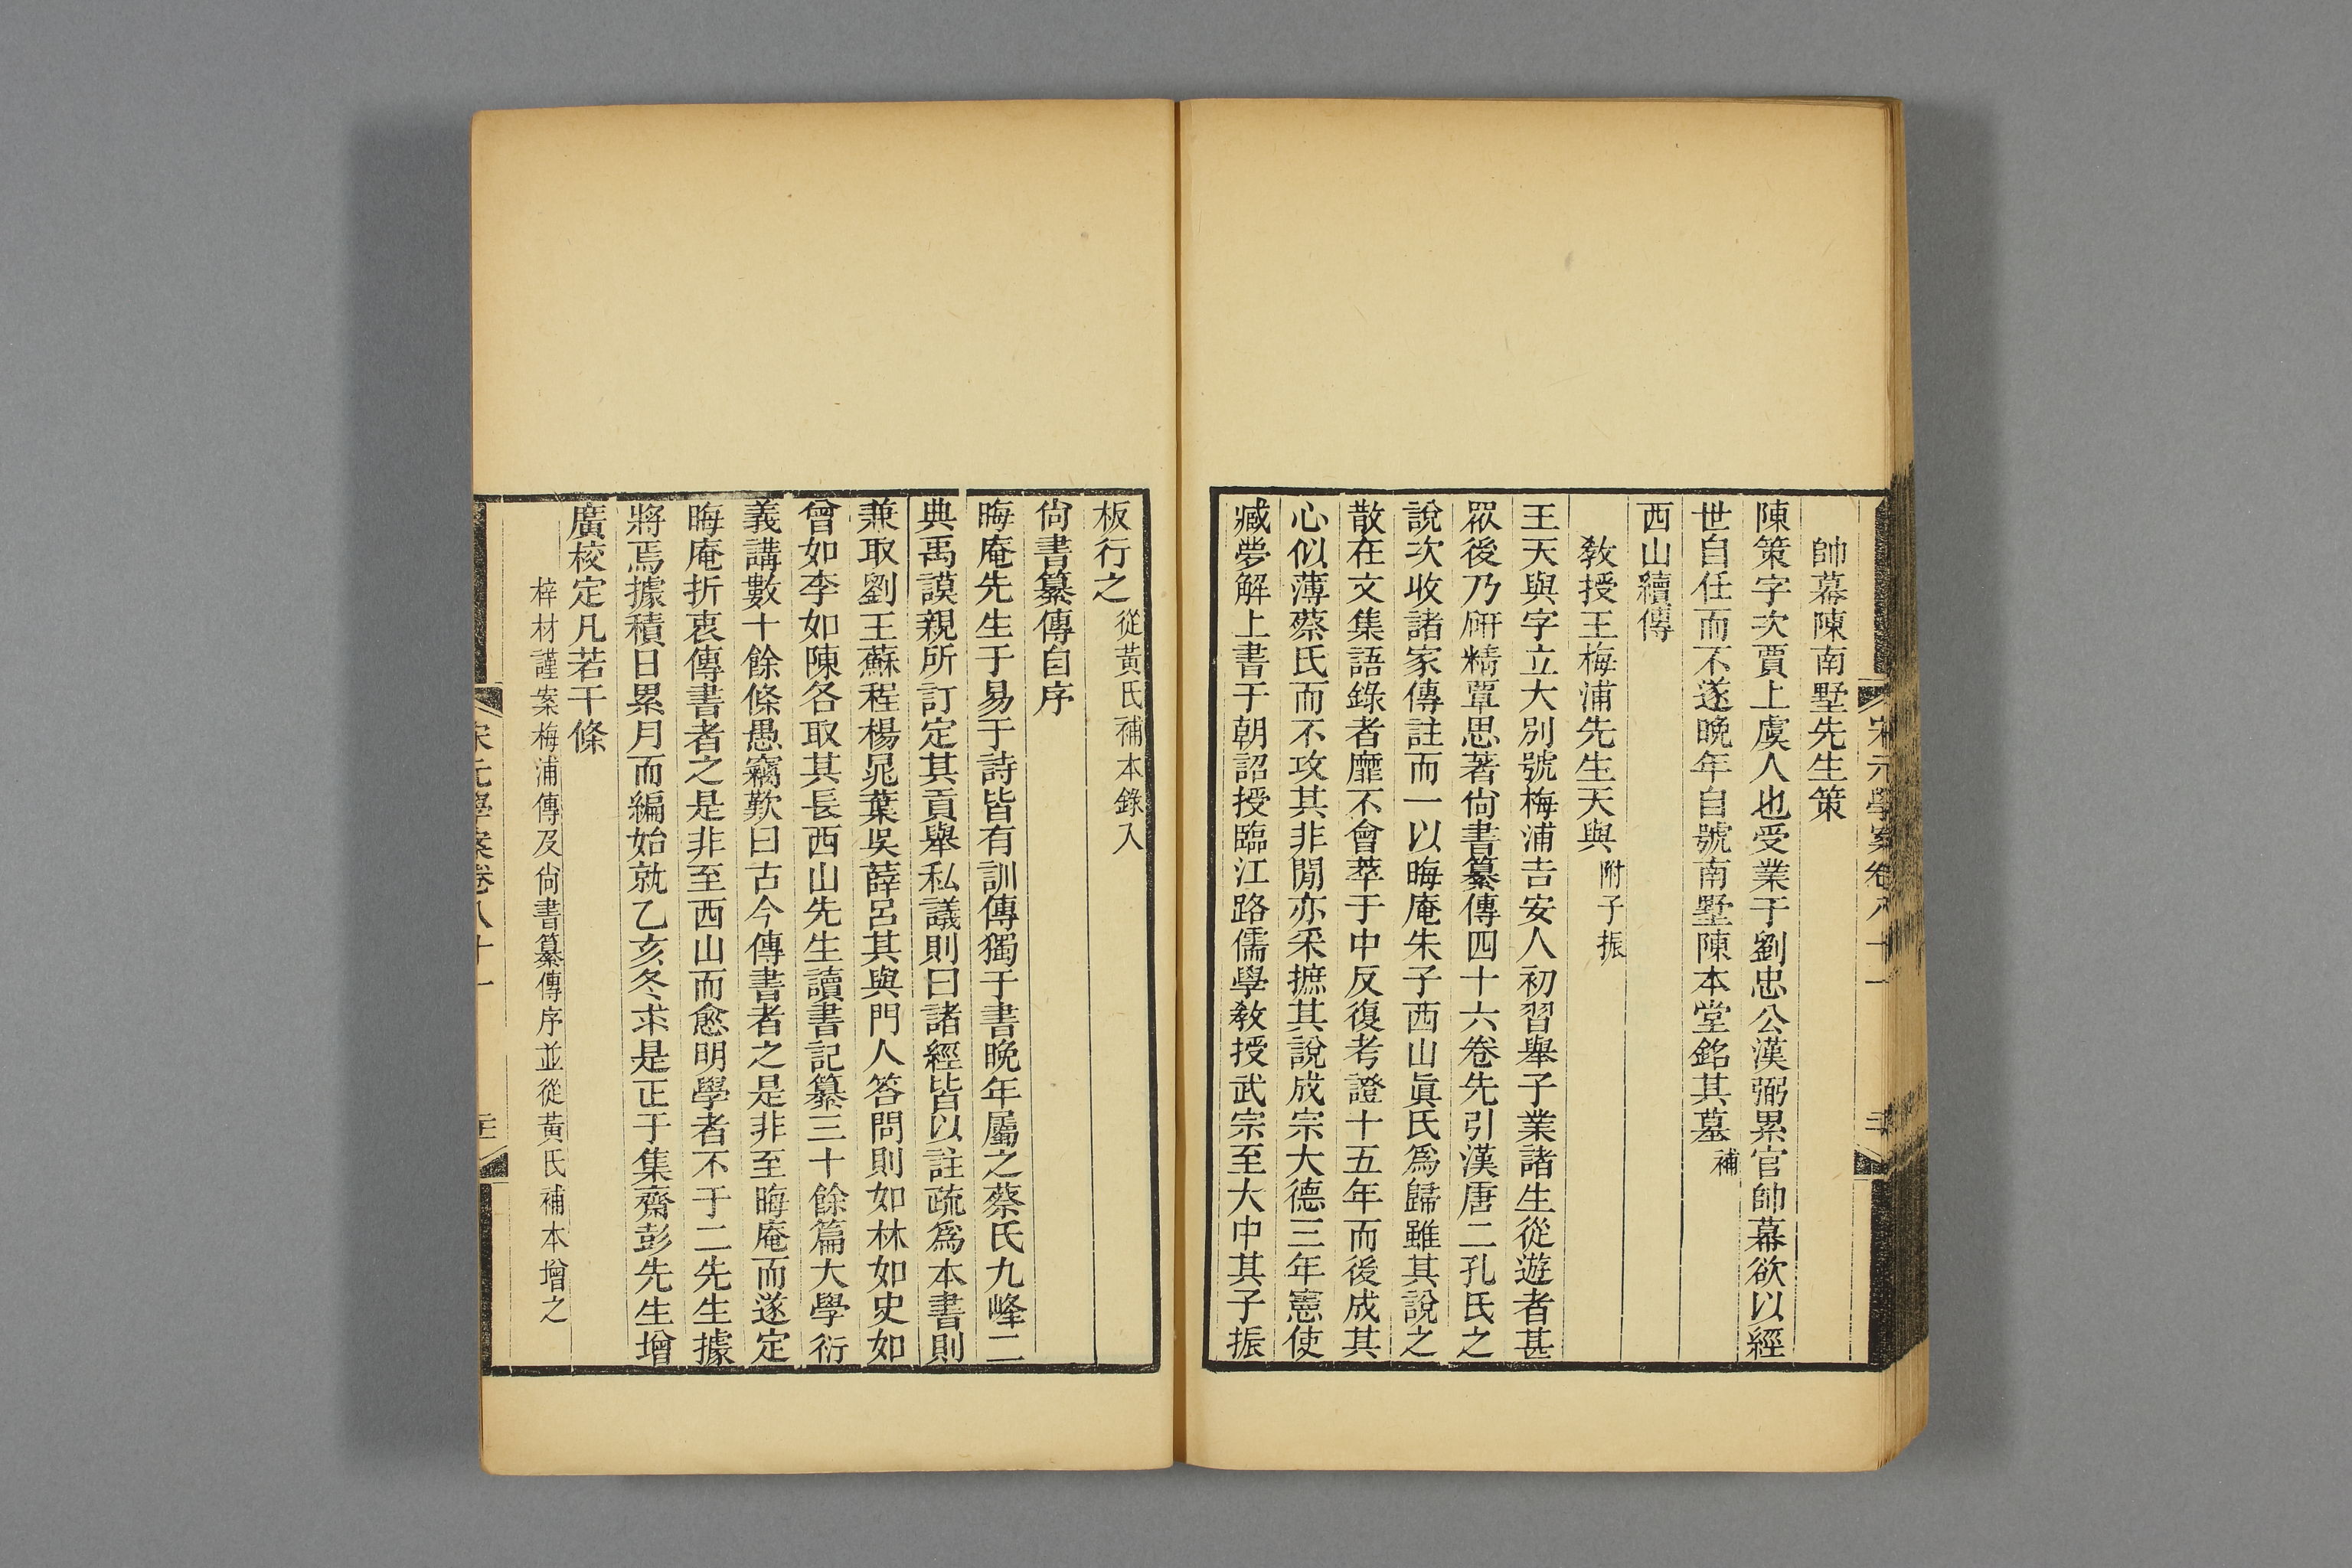 宋元學案卷八十一
帥幕陳南墅先生策
陳策字次賈上虞人也受業于劉忠公漢弼累官帥幕欲以經
世自任而不遂晚年自號南墅陳本堂銘其墓補
西山續傳
教授王梅浦先生天與附子振
王天與字立大別號梅浦吉安人初習舉子業諸生從遊者甚
眾後乃硏精覃思著尙書纂傳四十六卷先引漢唐二孔氏之
說次收諸家傳註而一以晦庵朱子西山眞氏爲歸雖其說之
散在文集語錄者靡不會萃于中反復考證十五年而後成其
心似薄蔡氏而不攻其非閒亦采摭其說成宗大德三年憲使
臧夢解上書于朝詔授臨江路儒學教授武宗至大中其子振
板行之從黃氏補本錄入
尙書纂傳自序
晦庵先生于易于詩皆有訓傳獨于書晚年屬之蔡氏九峰二
典禹謨親所訂定其貢舉私議則曰諸經皆以註疏爲本書則
兼取劉王蘇程楊晁葉吳薛呂其與門人答問則如林如史如
曾如李如陳各取其長西山先生讀書記纂三十餘篇大學衍
義講數十餘條愚竊歎曰古今傳書者之是非至晦庵而遂定
晦庵折衷傳書者之是非至西山而愈明學者不于二先生據
將焉據積日累月而編始就乙亥冬求是正于集齋彭先生增
廣校定凡若干條
梓材謹案梅浦傳及尙書纂傳序並從黃氏補本增之
宋元學案卷八十一